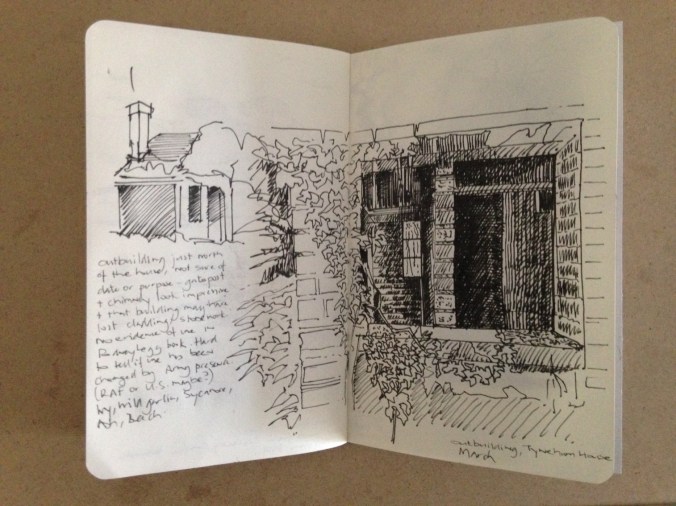 outbuilding just north
of the house, not sure of
date or purpose - gatepost
+ chimney look impressive
+ that building may have
lost cladding + stonework
no evidence of use in
book. Hard
to tell if use has been
changed by Army presence
(RAF or U.S. maybe?)
Ivy, wild garlic, Sycamore,
Ash, Beech.
outbuilding, Tyneham House
March